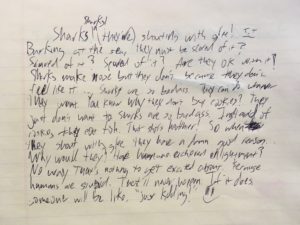 Sharks!
Sharks (they're) shouting with glee! !!
Barking at the sea, they must be scared of it?
Scared of it? Scared of it? Are they ok with it?
Sharks make noise but they don't because they don't
feel like it. Sharks so badass they can do whatever
they want. You know why they don't buy cookies? They
just don't want to. Sharks are so badass, instead of
cookies they eat fish. That's hardcore! So when
they shout with glee they have a damn good reason.
Why would they? Have humans achieved enlightenment?
No way. There's nothing to get excited about
humans are stupid. That'll never happen. If it does
someone will be like, "just kidding!"